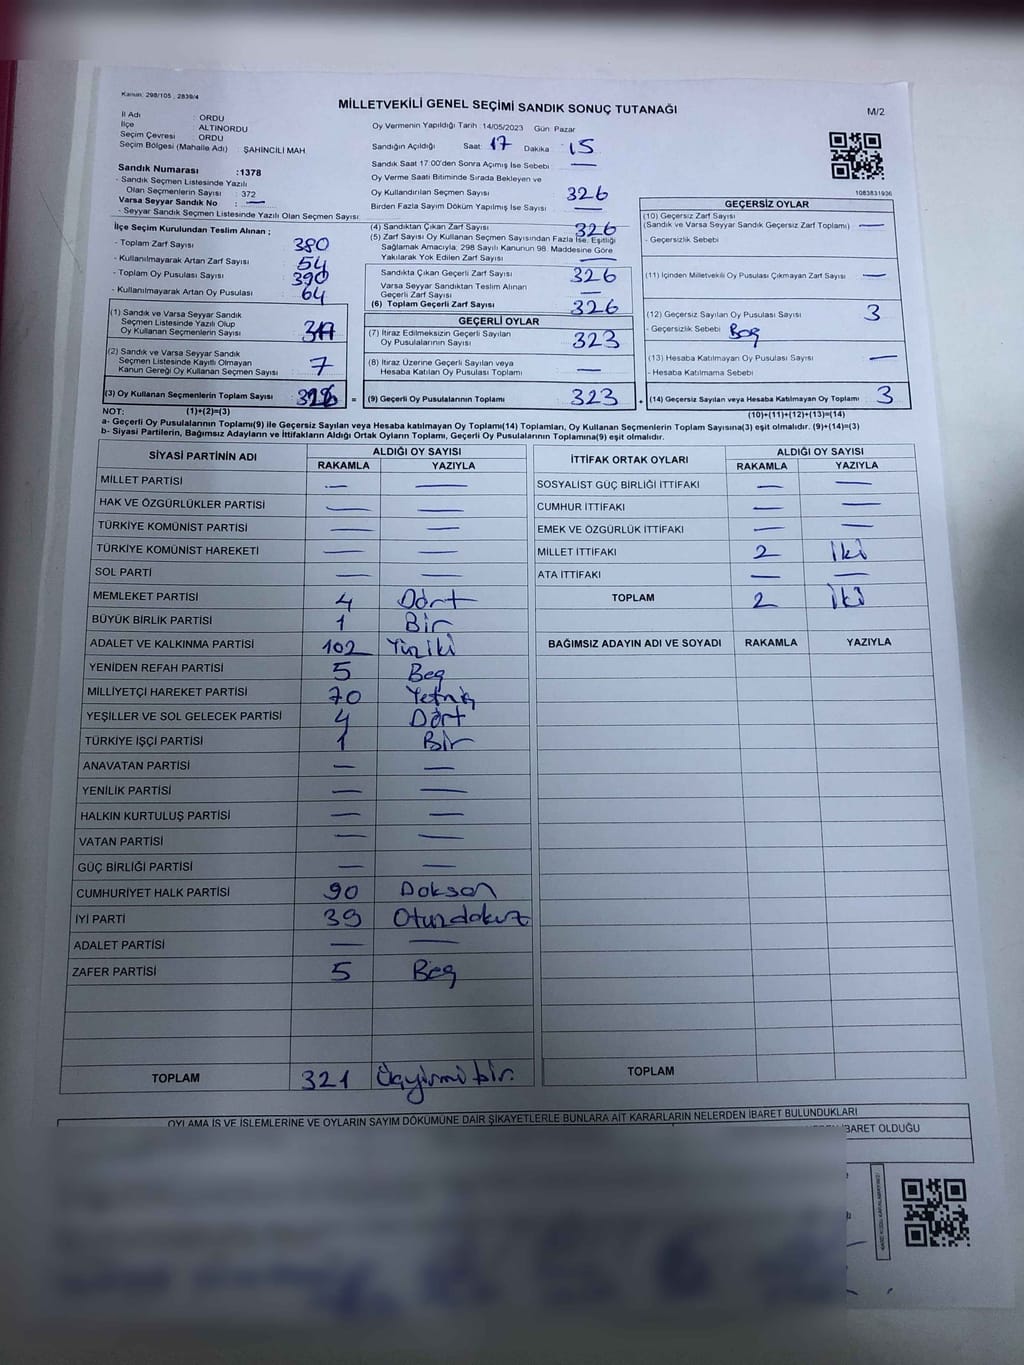 Kanun: 298/105 , 2839/4
MİLLETVEKİLİ GENEL SEÇİMİ SANDIK SONUÇ TUTANAĞI
M/2
İl Adı : ORDU
İlçe ALTINORDU
Seçim Çevresi : ORDU
Seçim Bölgesi (Mahalle Adı) ŞAHİNCİLİ MAH.
Sandık Numarası :1378
- Sandık Seçmen Listesinde Yazılı
Olan Seçmenlerin Sayısı : 372
Varsa Seyyar Sandık No : —
- Seyyar Sandık Seçmen Listesinde Yazılı Olan Seçmen Sayısı:
Oy Vermenin Yapıldığı Tarih :14/05/2023 Gün: Pazar
Sandığın Açıldığı Saat: 17 Dakika : 15
Sandık Saat 17:00'den Sonra Açımış İse Sebebi —
Oy Verme Saati Bitiminde Sırada Bekleyen ve
Oy Kullandırılan Seçmen Sayısı 326
Birden Fazla Sayım Döküm Yapılmış İse Sayısı —
1083831936
İlçe Seçim Kurulundan Teslim Alınan ;
- Toplam Zarf Sayısı 380
- Kullanılmayarak Artan Zarf Sayısı 54
- Toplam Oy Pusulası Sayısı 390
- Kullanılmayarak Artan Oy Pusulası 64
(1) Sandık ve Varsa Seyyar Sandık
Seçmen Listesinde Yazılı Olup
Oy Kullanan Seçmenlerin Sayısı
(2) Sandık ve Varsa Seyyar Sandık
Seçmen Listesinde Kayıtlı Olmayan
Kanun Gereği Oy Kullanan Seçmen Sayısı 7
(3) Oy Kullanan Seçmenlerin Toplam Sayısı =
(4) Sandıktan Çıkan Zarf Sayısı 326
(5) Zarf Sayısı Oy Kullanan Seçmen Sayısından Fazla İse, Eşitliği
Sağlamak Amacıyla; 298 Sayılı Kanunun 98. Maddesine Göre
Yakılarak Yok Edilen Zarf Sayısı —
Sandıkta Çıkan Geçerli Zarf Sayısı 326
Varsa Seyyar Sandıktan Teslim Alınan
Geçerli Zarf Sayısı —
(6) Toplam Geçerli Zarf Sayısı 326
GEÇERLİ OYLAR
(7) İtiraz Edilmeksizin Geçerli Sayılan
Oy Pusulalarının Sayısı 323
(8) İtiraz Üzerine Geçerli Sayılan veya
Hesaba Katılan Oy Pusulası Toplamı —
(9) Geçerli Oy Pusulalarının Toplamı 323 +
GEÇERSİZ OYLAR
(10) Geçersiz Zarf Sayısı
(Sandık ve Varsa Seyyar Sandık Geçersiz Zarf Toplamı) —
- Geçersizlik Sebebi
(11) İçinden Milletvekili Oy Pusulası Çıkmayan Zarf Sayısı —
(12) Geçersiz Sayılan Oy Pusulası Sayısı 3
- Geçersizlik Sebebi Boş
(13) Hesaba Katılmayan Oy Pusulası Sayısı —
- Hesaba Katılmama Sebebi
(14) Geçersiz Sayılan veya Hesaba Katılmayan Oy Toplamı 3
NOT: (1)+(2)=(3) (10)+(11)+(12)+(13)=(14)
a- Geçerli Oy Pusulalarının Toplamı(9) ile Geçersiz Sayılan veya Hesaba katılmayan Oy Toplamı(14) Toplamları, Oy Kullanan Seçmenlerin Toplam Sayısına(3) eşit olmalıdır. (9)+(14)=(3)
b- Siyasi Partilerin, Bağımsız Adayların ve İttifakların Aldığı Ortak Oyların Toplamı, Geçerli Oy Pusulalarının Toplamına(9) eşit olmalıdır.
SİYASİ PARTİNİN ADI ALDIĞI OY SAYISI
RAKAMLA YAZIYLA
MİLLET PARTİSİ — —
HAK VE ÖZGÜRLÜKLER PARTİSİ — —
TÜRKİYE KOMÜNİST PARTİSİ — —
TÜRKİYE KOMÜNİST HAREKETİ — —
SOL PARTİ — —
MEMLEKET PARTİSİ 4 Dört
BÜYÜK BİRLİK PARTİSİ 1 Bir
ADALET VE KALKINMA PARTİSİ 102 Yüziki
YENİDEN REFAH PARTİSİ 5 Beş
MİLLİYETÇİ HAREKET PARTİSİ 70 Yetmiş
YEŞİLLER VE SOL GELECEK PARTİSİ 4 Dört
TÜRKİYE İŞÇİ PARTİSİ 1 Bir
ANAVATAN PARTİSİ — —
YENİLİK PARTİSİ — —
HALKIN KURTULUŞ PARTİSİ — —
VATAN PARTİSİ — —
GÜÇ BİRLİĞİ PARTİSİ — —
CUMHURİYET HALK PARTİSİ 90 Doksan
İYİ PARTİ 39 Otuzdokuz
ADALET PARTİSİ — —
ZAFER PARTİSİ 5 Beş
TOPLAM 321 Üçyirmi bir.
İTTİFAK ORTAK OYLARI ALDIĞI OY SAYISI
RAKAMLA YAZIYLA
SOSYALİST GÜÇ BİRLİĞİ İTTİFAKI — —
CUMHUR İTTİFAKI — —
EMEK VE ÖZGÜRLÜK İTTİFAKI — —
MİLLET İTTİFAKI 2 İki
ATA İTTİFAKI — —
TOPLAM 2 İki
BAĞIMSIZ ADAYIN ADI VE SOYADI RAKAMLA YAZIYLA
TOPLAM
OYLAMA İŞ VE İŞLEMLERİNE VE OYLARIN SAYIM DÖKÜMÜNE DAİR ŞİKAYETLERLE BUNLARA AİT KARARLARIN NELERDEN İBARET BULUNDUKLARI
İBARET OLDUĞU